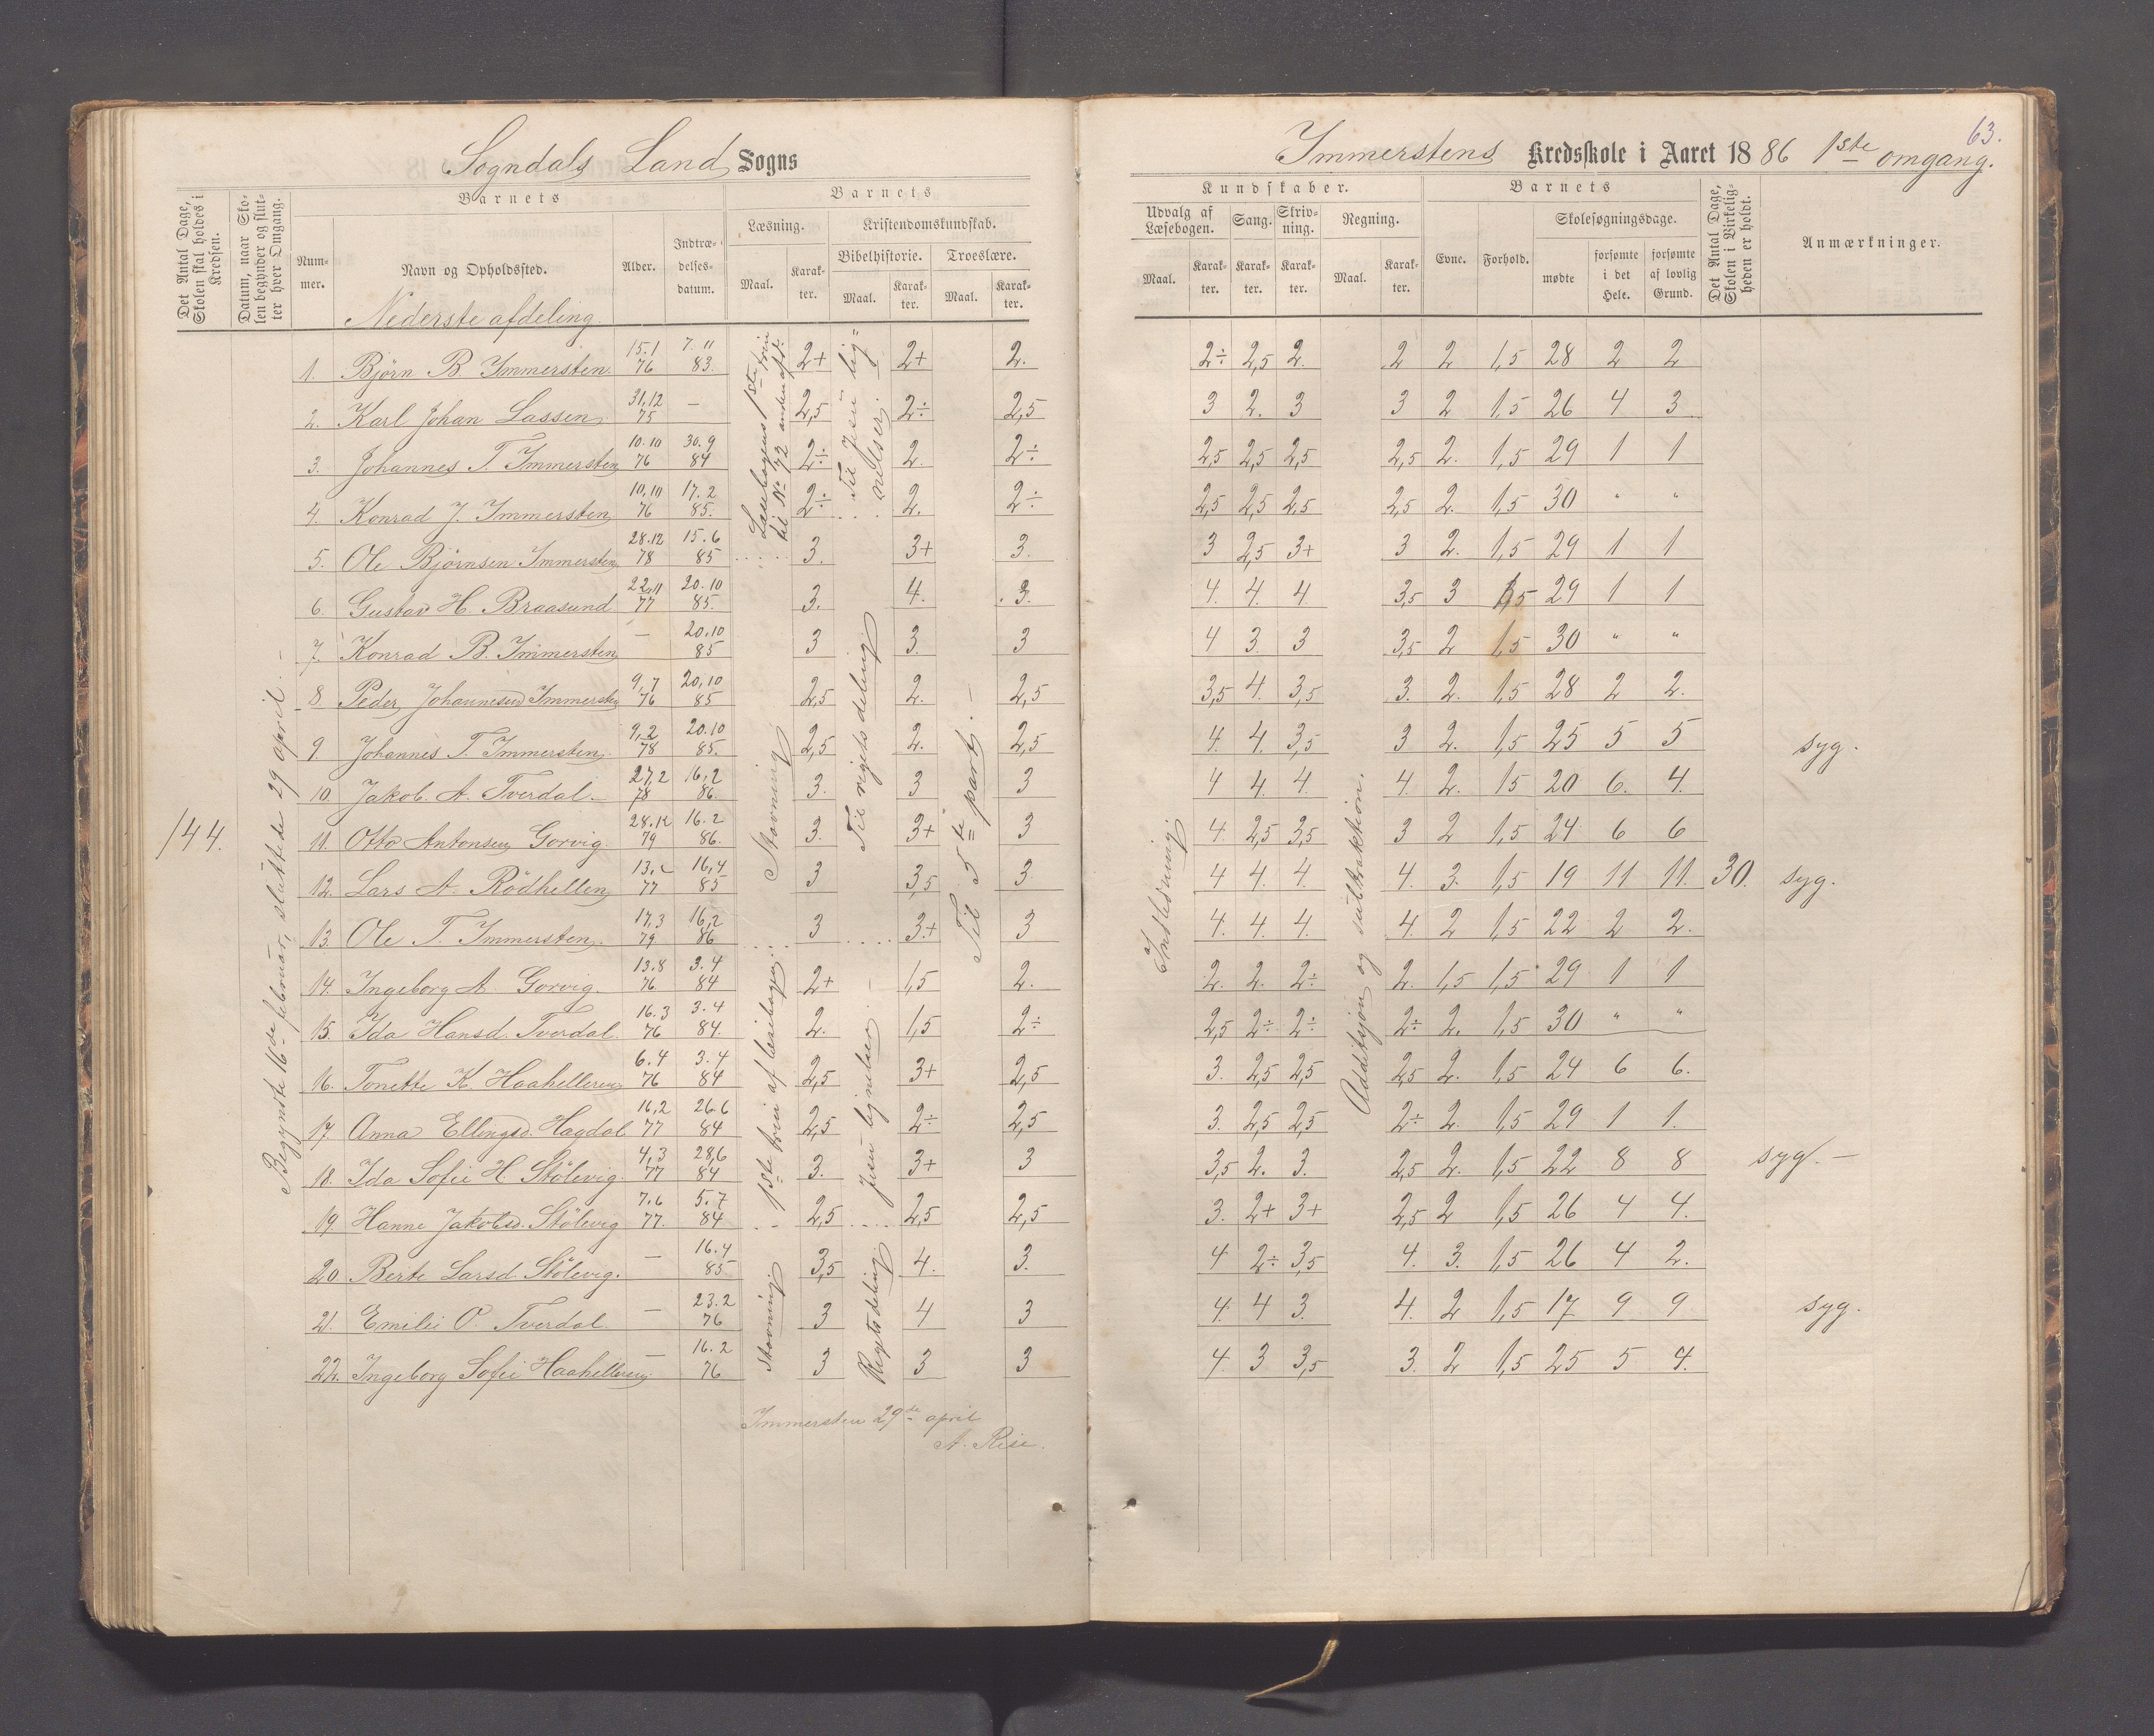 63.
Sogndals Land Sogns
Immerstens Kredsskole i Aaret 1886 1ste omgang.
Det Antal Dage, Skolen skal holdes i Kredsen.
Datum, naar Skolen begynder og slutter hver Omgang.
Barnets
Nummer.
Navn og Opholdssted.
Alder.
Indtrædelsesdatum.
Barnets
Læsning.
Maal.
Karakter.
Kristendomskundskab.
Bibelhistorie.
Maal.
Karakter.
Troeslære.
Maal.
Karakter.
Kundskaber.
Udvalg af Læsebogen.
Maal.
Karakter.
Sang.
Karakter.
Skrivning.
Karakter.
Regning.
Maal.
Karakter.
Barnets
Evne.
Forhold.
Skolesøgningsdage.
mødte
forsømte i det Hele.
forsømte af lovlig Grund.
Det Antal Dage, Skolen i Virkeligheden er holdt.
Anmærkninger.
Nederste afdeling.
144.
Begyndte 16de februar, sluttede 29 april. –
1. Björn B. Immersten 15.1 76 7.11 83. 2+ 2+ 2. 2÷ 2,5 2. 2 2 1,5 28 2 2
2. Karl Johan Lassen 31,12 75 – 2,5 2÷ 2,5 3 2. 3 3 2 1,5 26 4 3
3. Johannes T. Immersten 10.10 76 30.9 84 2÷ 2. 2÷ 2,5 2,5 2,5 2,5 2. 1,5 29 1 1
4. Konrad J. Immersten 10,10 76 17.2 85. 2÷ 2. 2÷ 2,5 2,5 2,5 2,5 2. 1,5 30 " "
5. Ole Björnsen Immersten 28.12 78 15.6 85 3. 3+ 3. 3 2,5 3+ 3 2. 1,5 29 1 1
6. Gustav H. Braasund 22,11 77 20.10 85. 3. 4. 3. 4. 4. 4 3,5 3 1,5 29 1 1
7. Konrad B. Immersten – 20.10 85 3 3. 3 4 3. 3 3,5 2 1,5 30 " "
8 Peder Johannesen Immersten 9,7 76 20,10 85 2,5 2. 2,5 3,5 4. 3,5 3. 2. 1,5 28 2 2.
9. Johannes T. Immersten 9,2 78 20.10 85. 2,5 2. 2,5 4. 4. 3,5 3 2. 1,5 25 5 5 syg.
10. Jakob. A. Tverdal. 27,2 78 16,2 86. 3. 3 3 4 4. 4. 4. 2. 1,5 20 6. 4.
11. Otto Antonsen Gorvig. 28.12 79 16.2 86. 3. 3+ 3 4. 2,5 3,5 3 2 1,5 24 6 6
12. Lars A. Rödhellen 77 16,4 85 3 3,5 3 4 4. 4. 4. 3. 1,5 19 11 11. 30. syg.
13. Ole T. Immersten. 17,3 79 16,2 86 3 3+ 3 4. 4. 4. 4. 2 1,5 22 2 2.
14. Ingeborg A. Gorvig. 13.8 76. 3.4 84 2+ 1,5 2. 2. 2. 2÷ 2. 1,5 1,5 29 1 1
15. Ida Hansd. Tverdal. 16.3 76 3.4 84. 2. 1,5 2÷ 2,5 2÷ 2÷ 2÷ 2. 1,5 30 " "
16. Tonette K. Haahelleren 6.4 76 3.4 84 2,5 3+ 2,5 3. 2,5 2,5 2,5 2. 1,5 24 6 6.
17. Anna Ellingsd. Hagdal 16,2 77 26.6 84 2,5 2÷ 2,5 3. 2,5 2,5 2÷ 2. 1,5 29 1 1.
18. Ida Sofie H. Stölevig. 4,3 77 28,6 84 3. 3+ 3 3,5 2. 3. 2,5 2. 1,5 22 8 8 syg. –
19. Hanne Jakobsd. Stölevig 7.6 77. 5.7 84 2,5 2,5 2,5 3. 2+ 3+ 2,5 2 1,5 26 4 4.
20 Berte Larsd. Stölevig. – 16.4 85 3,5 4. 3. 4 2÷ 3,5 4. 3. 1,5 26 4 2.
21. Emilie O. Tverdal. – 23.2 76 3 4 3 4. 4 3. 4. 2 1,5 17 9 9 syg.
22. Ingeborg Sofie Haahelleren. – 16.2 76 3 3 3 4. 3 3,5 3. 2 1,5 25 5 4.
Læsebogens 1ste trin
til No 72 anden afd.
Stavning
1ste trin af læsebogen.
Stavning
Til Jesu lignelser.
Til rigets deling
Jesu lignelser. –
Rigets deling
Til 5te part. –
Indledning.
Additsjon og subtraktion.
Immersten 29de april
A. Rise.